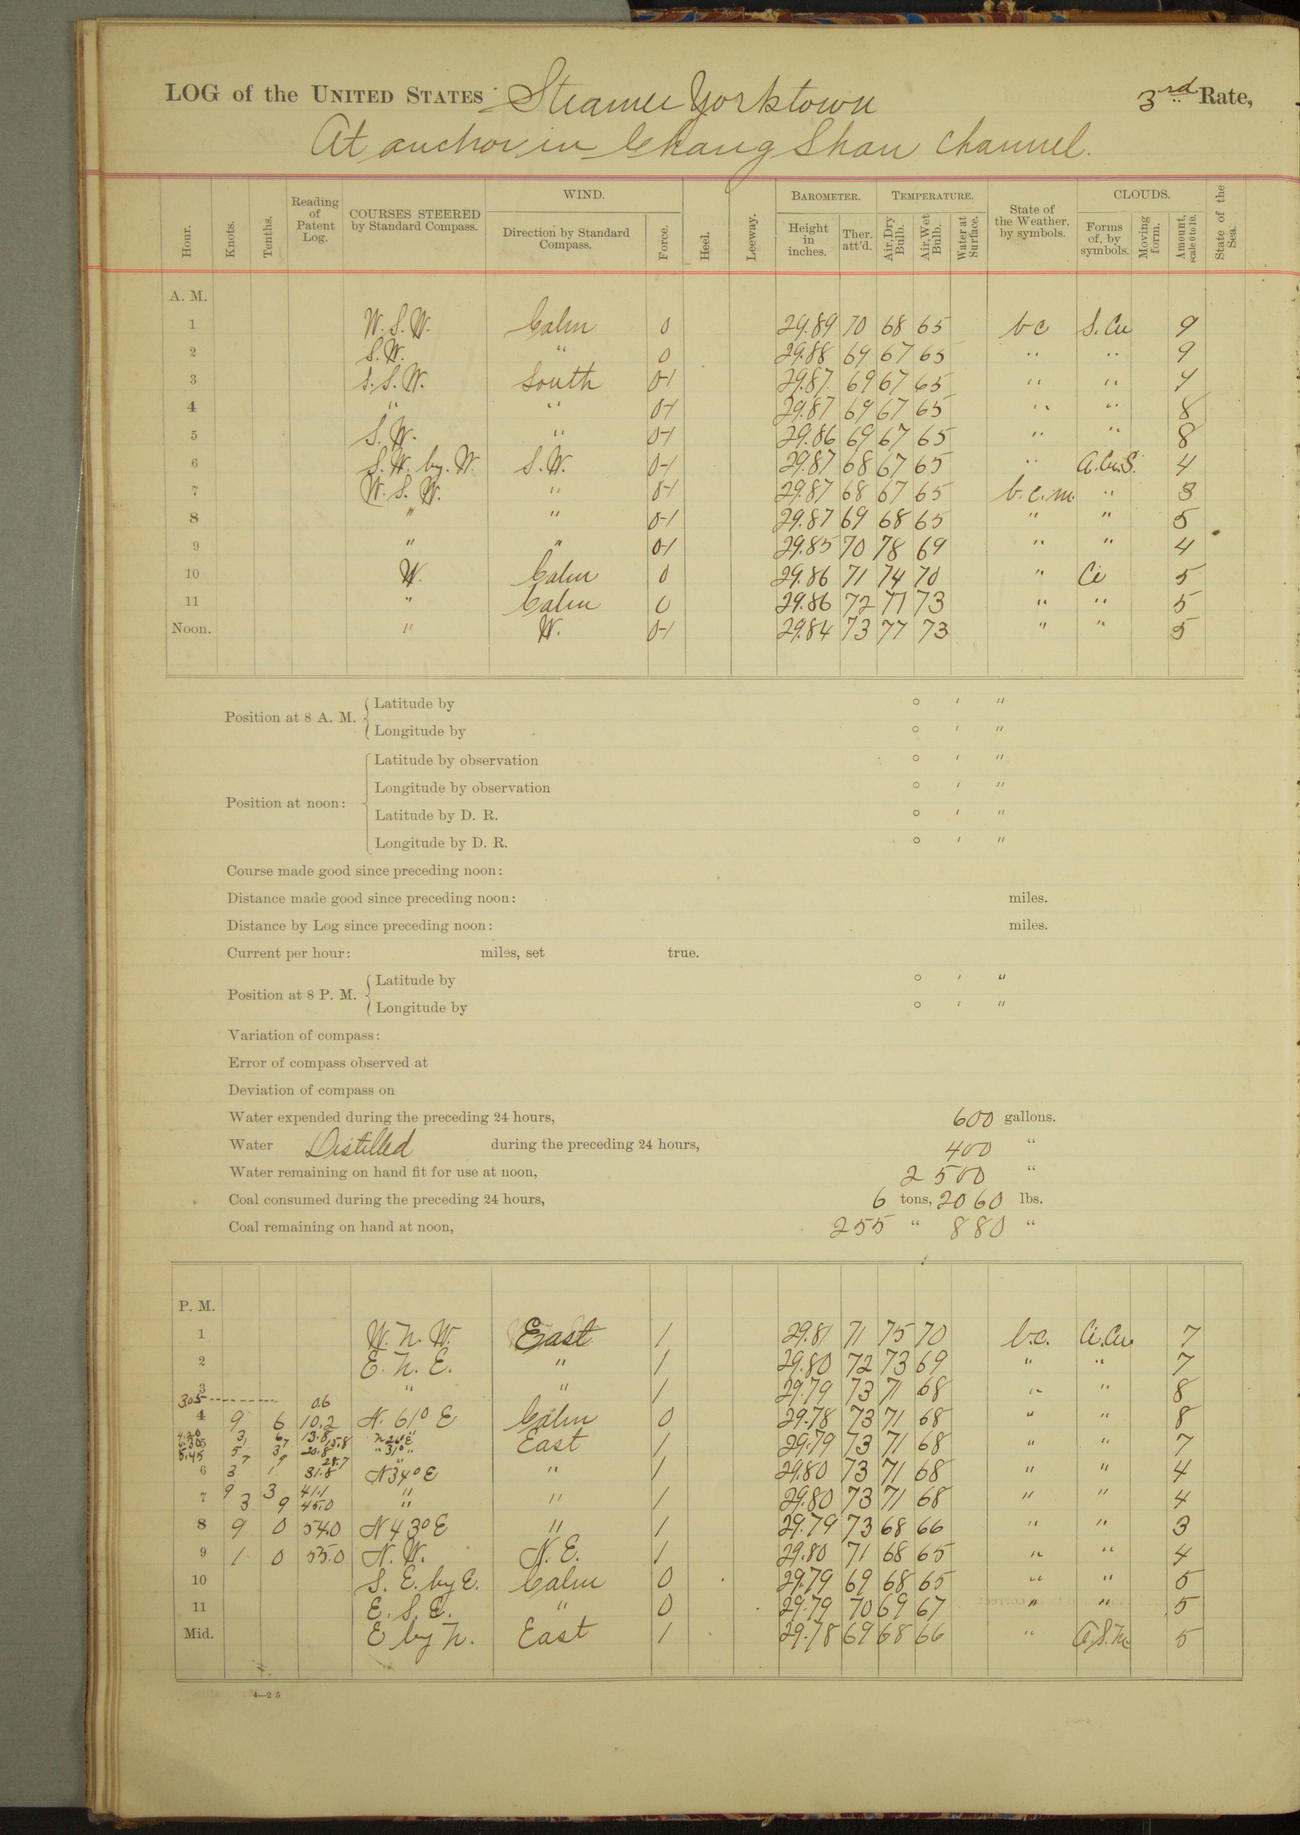 LOG of the UNITED STATES Steamer Yorktown 3rd Rate,
At anchor in Chang Shan Channel.
Hour. Knots. Tenths. Reading of Patent Log. COURSES STEERED by Standard Compass. WIND. Direction by Standard Compass. Force. Heel. Leeway. BAROMETER. Height in inches. Ther. att'd. TEMPERATURE. Air, Dry Bulb. Air, Wet Bulb. Water at Surface. State of the Weather, by symbols. CLOUDS. Forms of, by symbols. Moving form. Amount, scale 0 to 10. State of the Sea.
A. M.
1 W. S. W. Calm 0 29.89 70 68 65 bc S. Cu 9
2 S. W. " 0 29.88 69 67 65 " " 9
3 S. S. W. South 0-1 29.87 69 67 65 " "
4 " " 0-1 29.87 69 67 65 " " 8
5 S. W. " 0-1 29.86 69 67 65 " " 8
6 S. W. by. W. S. W. 0-1 29.87 68 67 65 " A. Cu. S. 4
7 W. S. W. " 0-1 29.87 68 67 65 b. c. m. " 3
8 " " 0-1 29.87 69 68 65 " " 5
9 " " 0-1 29.85 70 78 69 " " 4
10 W. Calm 0 29.86 71 74 70 " Ci 5
11 " Calm 0 29.86 72 77 73 " " 5
Noon. " W. 0-1 29.84 73 77 73 " " 5
Position at 8 A. M. Latitude by ° ' "
Longitude by ° ' "
Position at noon: Latitude by observation ° ' "
Longitude by observation ° ' "
Latitude by D. R. ° ' "
Longitude by D. R. ° ' "
Course made good since preceding noon:
Distance made good since preceding noon: miles.
Distance by Log since preceding noon: miles.
Current per hour: miles, set true.
Position at 8 P. M. Latitude by ° ' "
Longitude by ° ' "
Variation of compass:
Error of compass observed at
Deviation of compass on
Water expended during the preceding 24 hours, 600 gallons.
Water Distilled during the preceding 24 hours, 400 "
Water remaining on hand fit for use at noon, 2500 "
Coal consumed during the preceding 24 hours, 6 tons, 2060 lbs.
Coal remaining on hand at noon, 255 " 880 "
P. M.
1 W. N. W. East 1 29.81 71 75 70 b.c. Ci. Cu 7
2 E. N. E. " 1 29.80 72 73 69 " " 7
3 " " 1 29.79 73 71 68 " " 8
305 0.6
4 9 6 10.2 N. 61° E Calm 0 29.78 73 71 68 " " 8
East 1 29.79 73 71 68 " " 7
5.45
6 3 1 31.8 N 34° E " 1 29.80 73 71 68 " " 4
9 3 41.1 "
7 3 9 45.0 " " 1 29.80 73 71 68 " " 4
8 9 0 54.0 N 43° E " 1 29.79 73 68 66 " " 3
9 1 0 55.0 N. W. N. E. 1 29.80 71 68 65 " " 4
10 S. E. by E. Calm 0 29.79 69 68 65 " " 5
11 E. S. E. " 0 29.79 70 69 67 " " 5
Mid. E by N. East 1 29.78 69 68 66 " 5
4—25